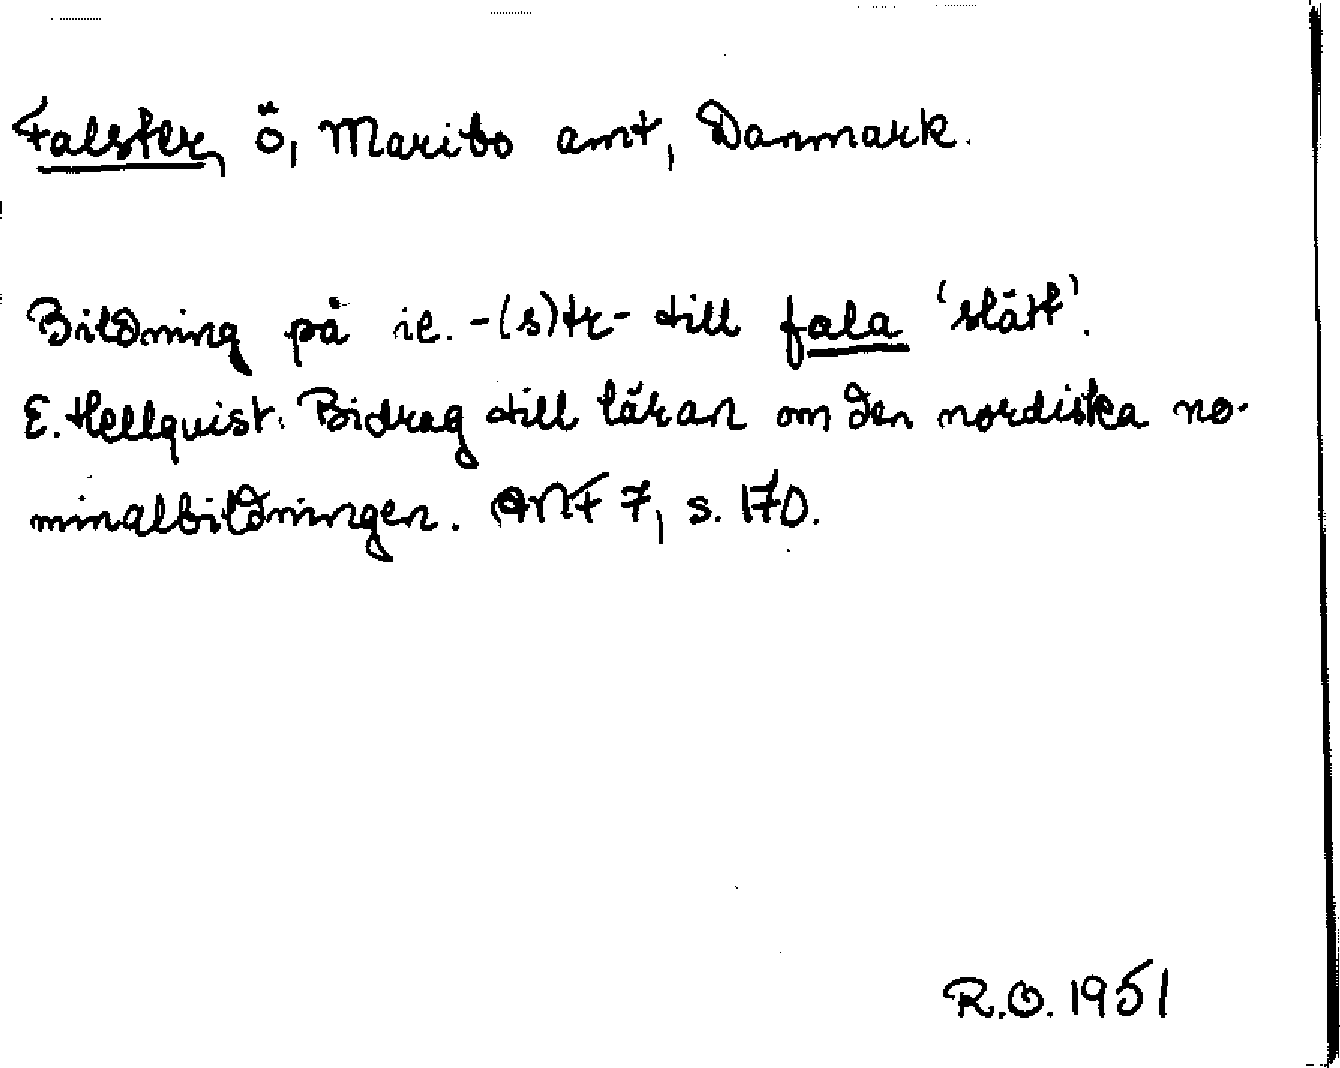 Falster, ö, Maribo amt, Danmark.
Bildning på ie. -(s)tr- till fala 'slätt'.
E. Hellquist: Bidrag till läran om den nordiska no-
minalbildningen. ANF 7, s. 170.
R.O. 1951